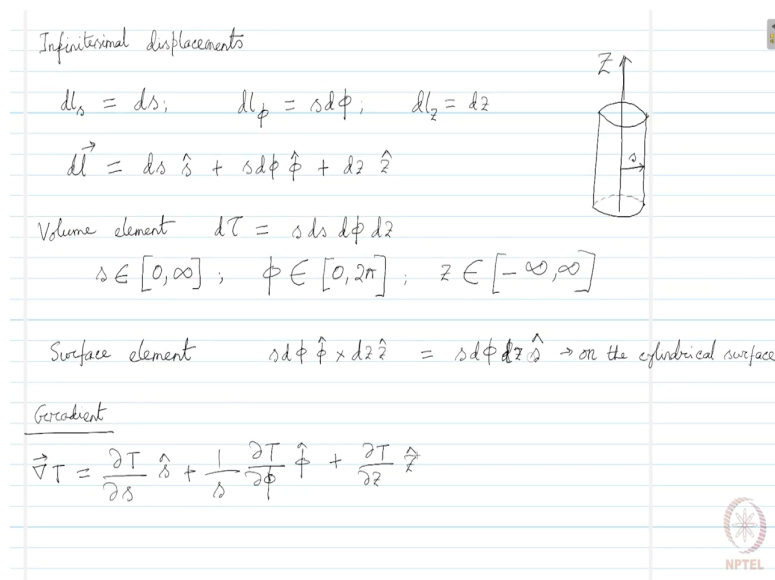 Infinitesimal displacements
dl_s = ds; dl_φ = sdφ; dl_z = dz
d\vec{l} = ds ŝ + sdφ φ̂ + dz ẑ
Volume element dτ = s ds dφ dz
s ∈ [0,∞] ; φ ∈ [0, 2π] ; z ∈ [-∞,∞]
Surface element sdφ φ̂ × dz ẑ = sdφ dz ŝ → on the cylindrical surface
Gradient
\vec{∇}T = ∂T/∂s ŝ + 1/s ∂T/∂φ φ̂ + ∂T/∂z ẑ
Z
s
NPTEL